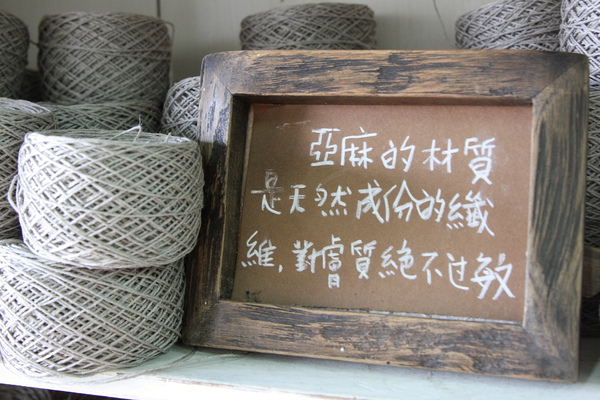 亞麻的材質
是天然成份的纖
維,對膚質絕不过敏